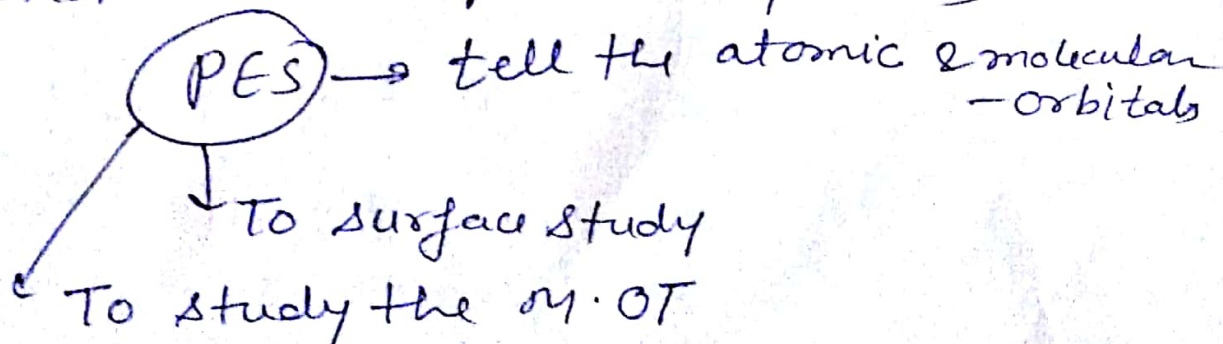 PES → tell the atomic & molecular
- orbitals
To surface study
To study the M.OT